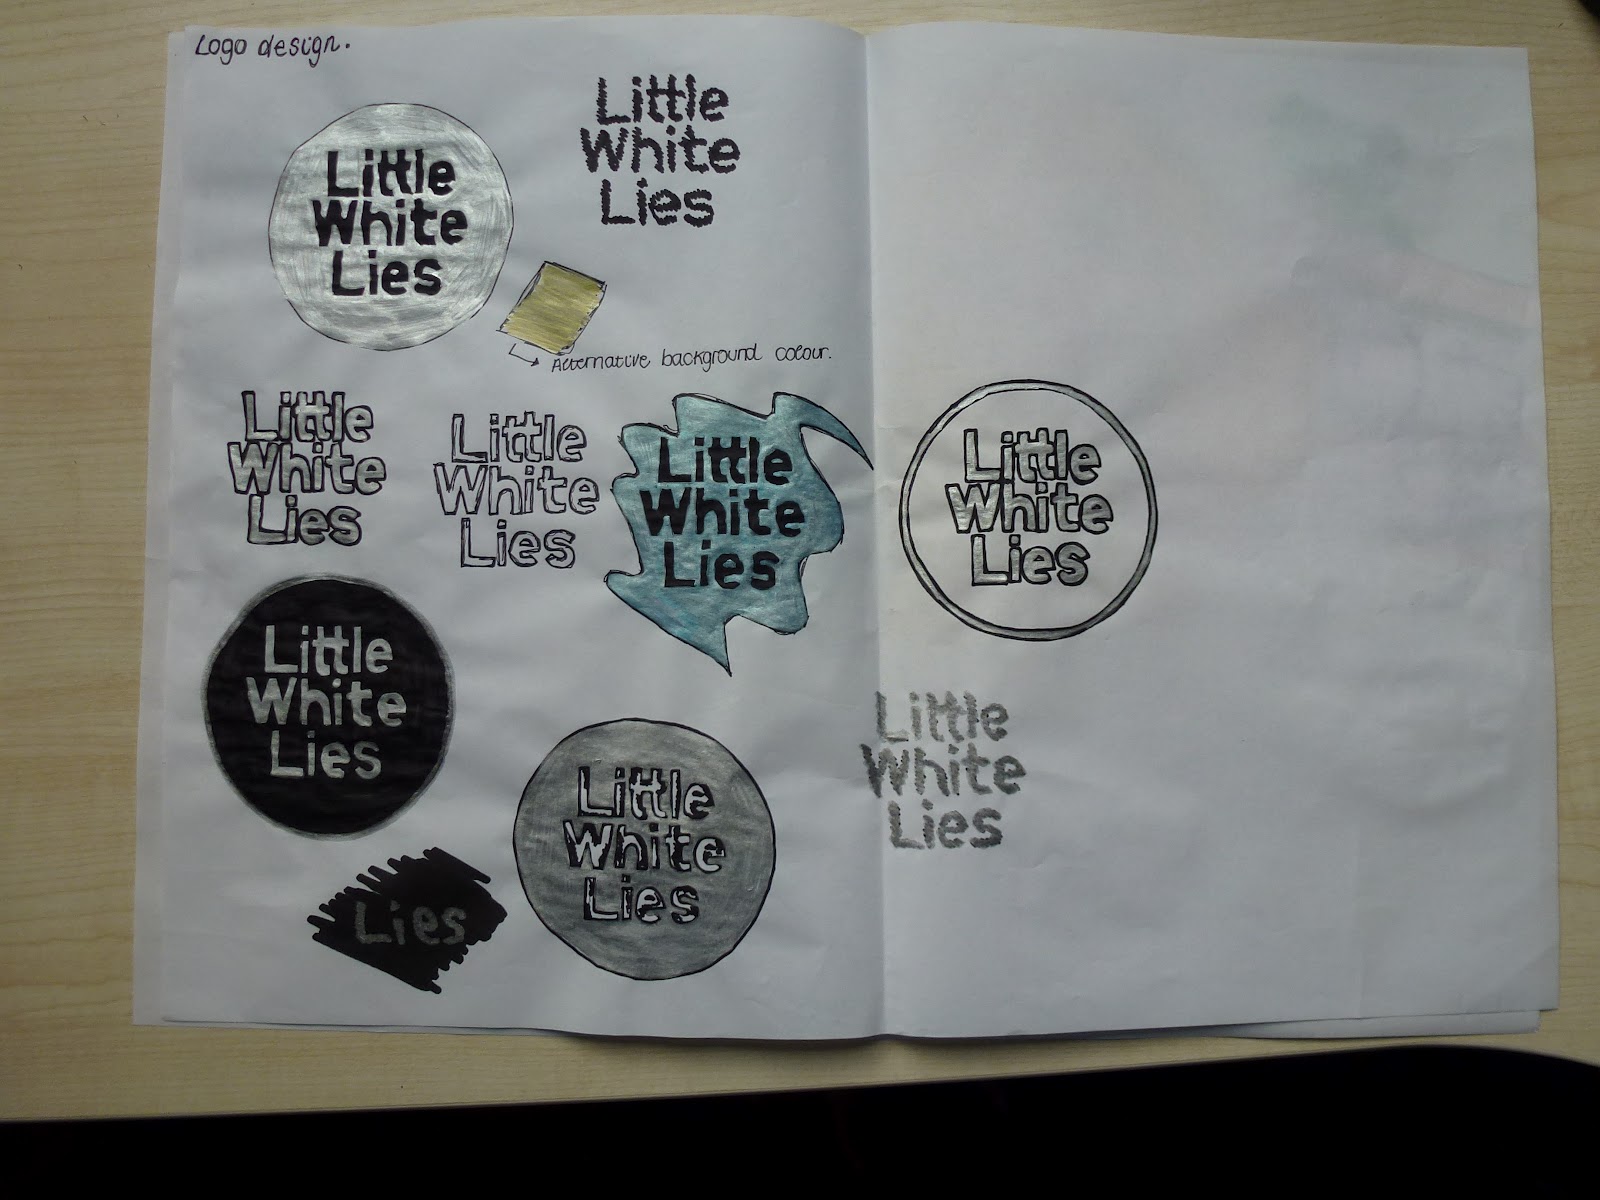 Logo design.
Little
White
Lies
Little
White
Lies
Alternative background colour.
Little
White
Lies
Little
White
Lies
Little
White
Lies
Little
White
Lies
Little
White
Lies
Little
White
Lies
Little
White
Lies
Lies